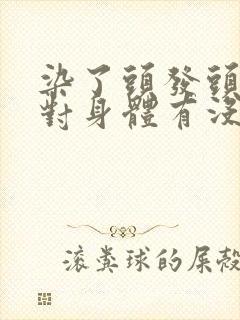 染了頭發頭
對身體有沒
滾糞球的屎殼